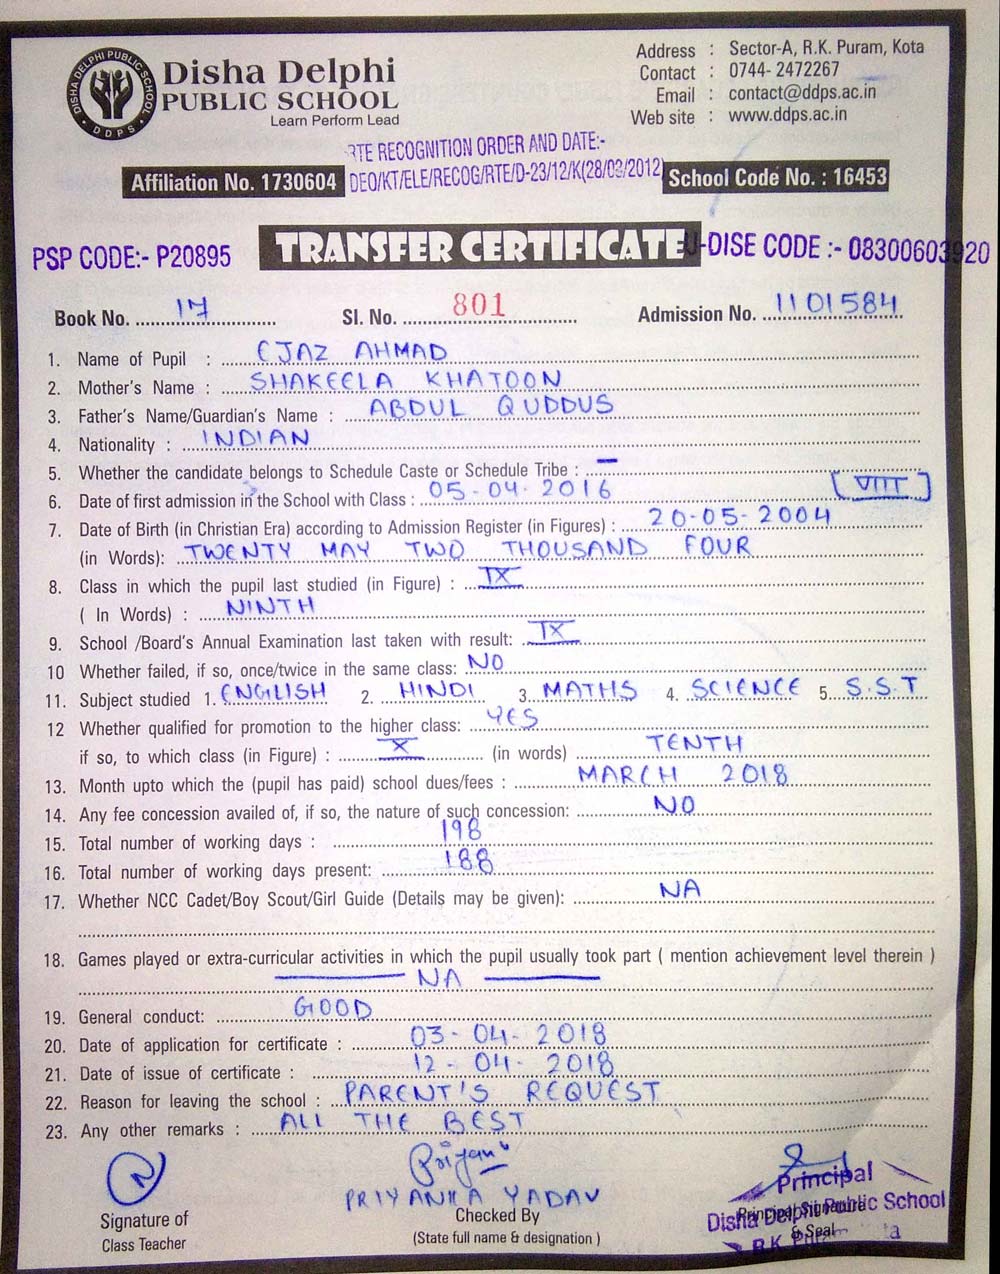 DISHA DELPHI PUBLIC SCHOOL
DDPS
Disha Delphi
PUBLIC SCHOOL
Learn Perform Lead
Address : Sector-A, R.K. Puram, Kota
Contact : 0744- 2472267
Email : contact@ddps.ac.in
Web site : www.ddps.ac.in
RTE RECOGNITION ORDER AND DATE:-
Affiliation No. 1730604 DEO/KT/ELE/RECOG/RTE/D-23/12/K(28/03/2012) School Code No. : 16453
PSP CODE:- P20895 TRANSFER CERTIFICATE U-DISE CODE :- 08300603920
Book No. 17 Sl. No. 801 Admission No. 1101584
1. Name of Pupil : EJAZ AHMAD
2. Mother's Name : SHAKEELA KHATOON
3. Father's Name/Guardian's Name : ABDUL QUDDUS
4. Nationality : INDIAN
5. Whether the candidate belongs to Schedule Caste or Schedule Tribe : –
6. Date of first admission in the School with Class : 05-04-2016 [VIII]
7. Date of Birth (in Christian Era) according to Admission Register (in Figures) : 20-05-2004
(in Words): TWENTY MAY TWO THOUSAND FOUR
8. Class in which the pupil last studied (in Figure) : IX
( In Words) : NINTH
9. School /Board's Annual Examination last taken with result: IX
10 Whether failed, if so, once/twice in the same class: NO
11. Subject studied 1. ENGLISH 2. HINDI 3. MATHS 4. SCIENCE 5. S.S.T
12 Whether qualified for promotion to the higher class: YES
if so, to which class (in Figure) : X (in words) TENTH
13. Month upto which the (pupil has paid) school dues/fees : MARCH 2018
14. Any fee concession availed of, if so, the nature of such concession: NO
15. Total number of working days : 198
16. Total number of working days present: 188
17. Whether NCC Cadet/Boy Scout/Girl Guide (Details may be given): NA
18. Games played or extra-curricular activities in which the pupil usually took part ( mention achievement level therein )
NA
19. General conduct: GOOD
20. Date of application for certificate : 03-04-2018
21. Date of issue of certificate : 12-04-2018
22. Reason for leaving the school : PARENT'S REQUEST
23. Any other remarks : ALL THE BEST
Priyanka
PRIYANKA YADAV
Signature of
Class Teacher
Checked By
(State full name & designation )
Principal
Principal Signature
Disha Delphi Public School
& Seal
R.K.